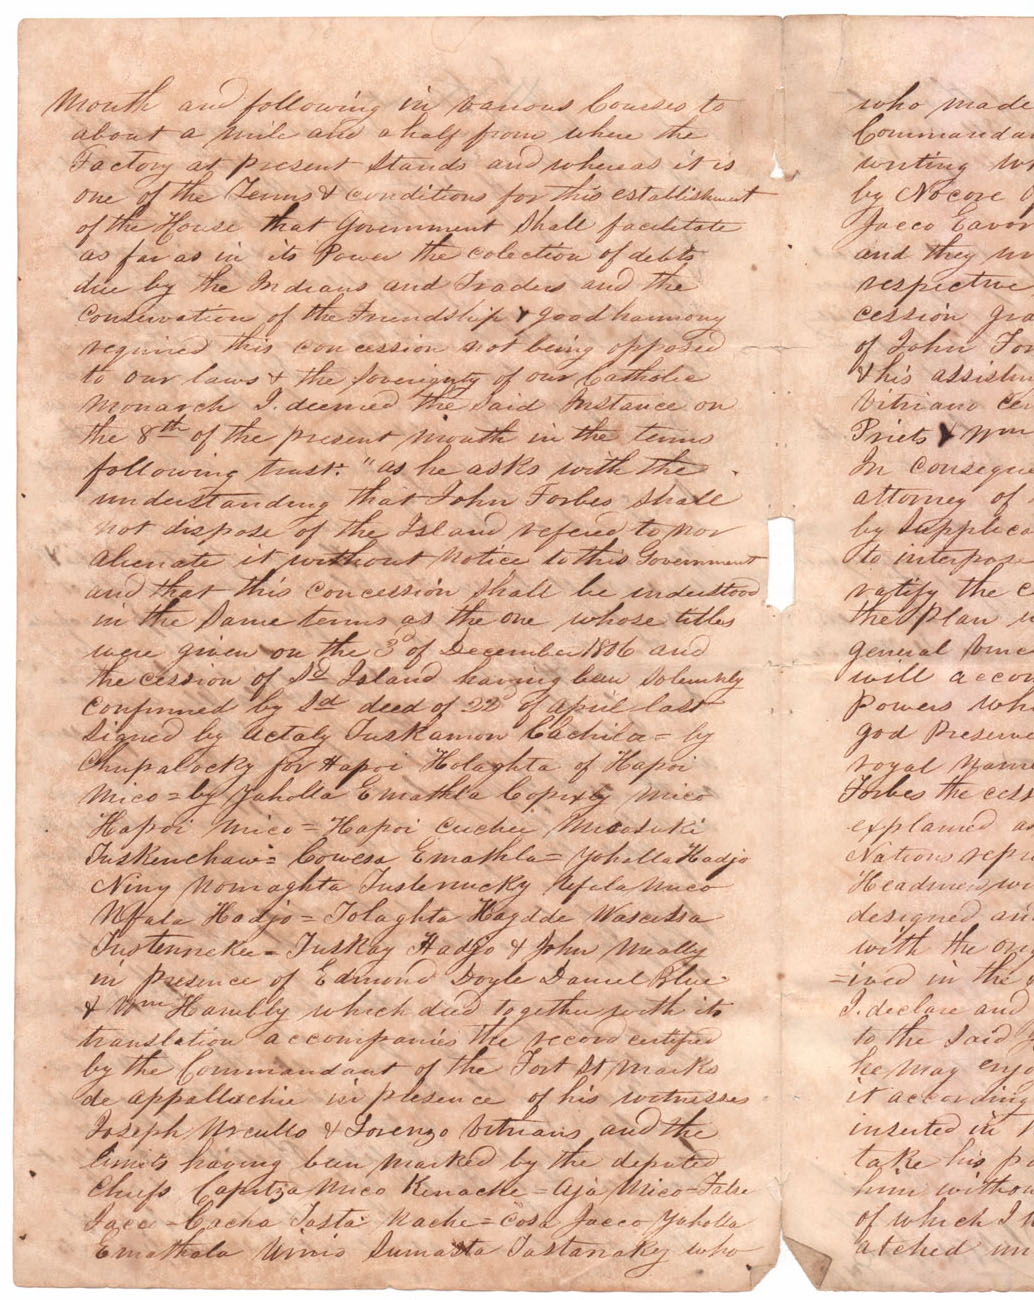 Mouth and following in various Courses to
about a mile and a half from where the
Factory at present Stands and whereas it is
one of the Terms & conditions for this establishment
of the House that Government Shall facilitate
as far as in its Power the colection of debts
due by the Indians and Traders and the
Conservation of the Friendship & good harmony
required this concession not being opposed
to our laws & the Soverignty of our Catholic
Monarch I. deemed the Said Instance on
the 8th of the present Month in the terms
following trust: "as he asks with the
understanding that John Forbes Shall
not dispose of the Island refered to nor
alienate it without Notice to this Government
and that this concession Shall be understood
in the Same terms as the one whose titles
were given on the 3d of December 1806 and
the cession of Sd Island having been Solemnly
Confirmed by Sd deed of 22d of april last
Signed by Actaly Tuskamon Cachila = by
Chupalocky for Hapoi Holaghta of Hapoi
Mico = by Yaholla Emathla Copixty Mico
Hapoi Mico = Hapoi Cuchee Micosuki
Tuskenchaw = Cowesa Emathla = Yoholla Hadjo
Niny Nomaghta Tustenucky Ufala Mico
Ufala Hadjo = Tolaghta Hagdde Wascissa
Tustennekee = Tuskay Hadjo & John Meally
in presence of Edmond Doyle Daniel Blue
& Wm Hambly which died together with its
translation accompanies the record certified
by the Commandant of the Fort St Marks
de appallachie in presence of his witnesses
Joseph Urcullo & Lorenzo Vitrians and the
limits having been marked by the deputed
Chiefs Capitza Mico Kenache = Aja Mico = False
Jacco = Cacha Tasta Kache = Cosa Jacco Yaholla
Emathala Ninis Sumasta Tastanaky who
who made
Commandan
writing w
by Nocore
Jacco Eavo
and they
respective
cession gra
of John For
& his assistan
Vitriano ce
Priets & Wm
In conseque
attorney of
by Supplica
to interpose
ratify the c
the Plan
general
will accom
Powers whi
god Preserve
royal name
Forbes the cess
explained a
Nations repr
Headmen wi
designed an
with the
=ived in the
I. declare and
to the Said
he may enjo
it according
inserted in
take his po
him witho
of which I
atched un